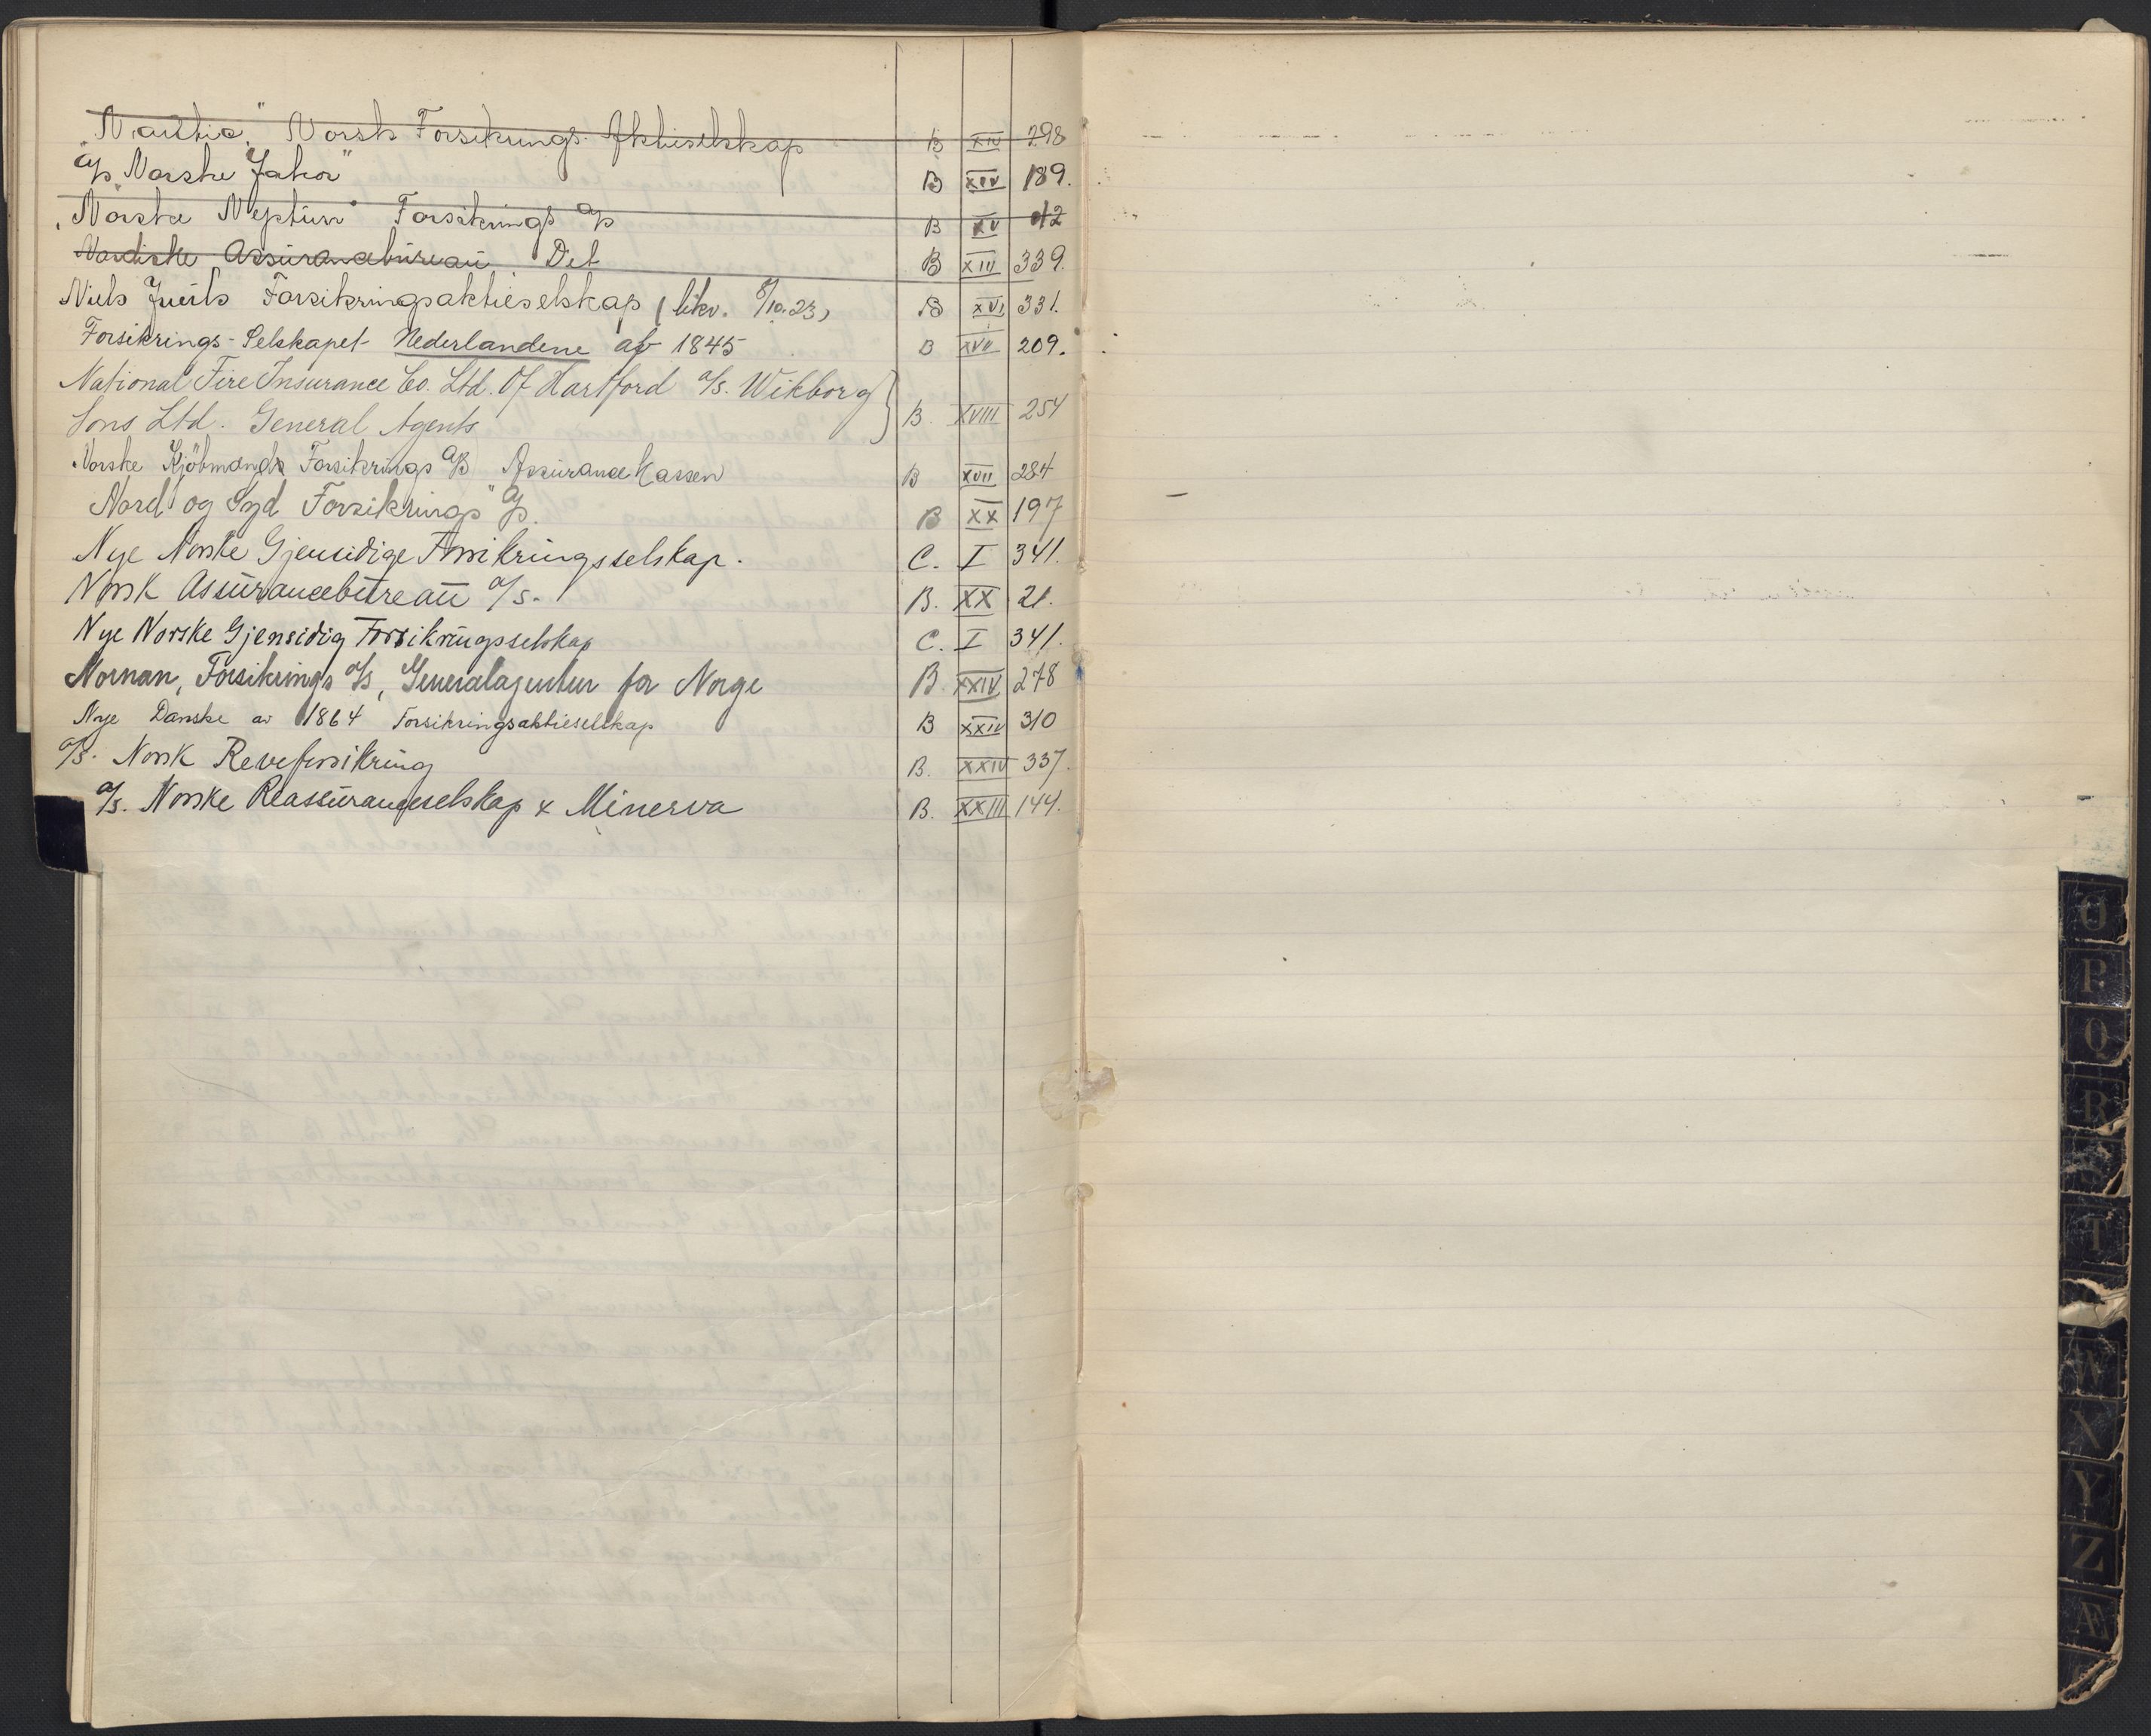 „Nautic" Norsk Forsikrings-Aktieselskap B XIV 298
A/S „Norske Jakor" B XIV 189.
„Norske Neptun" Forsikrings A/S B XV 42
Nordiske Assurancebureau Det B XIII 339.
Niels Juels Forsikringsaktieselskap (likv. 8/10.23) B XVI 331.
Forsikrings-Selskapet Nederlandene af 1845 B XVII 209.
National Fire Insurance Co. Ltd. Of Hartford a/s. Wikborg
Sons Ltd. General Agents B. XVIII 254
Norske Kjöbmands Forsikrings A/S Assurancekassen B XVII 284
"Nord og Syd Forsikrings" A/S. B XX 197
Nye Norske Gjensidige Forsikringsselskap. C. I 341.
Norsk Assurancebureau a/s. B. XX 21.
Nye Norske Gjensidig Forsikringsselskap C. I 341.
Nornan, Forsikrings A/S, Generalagentur for Norge B. XXIV 278
Nye Danske av 1864 Forsikringsaktieselskap B XXIV 310
a/s. Norsk Reveforsikring B. XXIV 337.
a/s. Norske Reassuranceselskap x Minerva B. XXIII 144.
O
P
Q
R
S
T
W
X
Y
Z
Æ